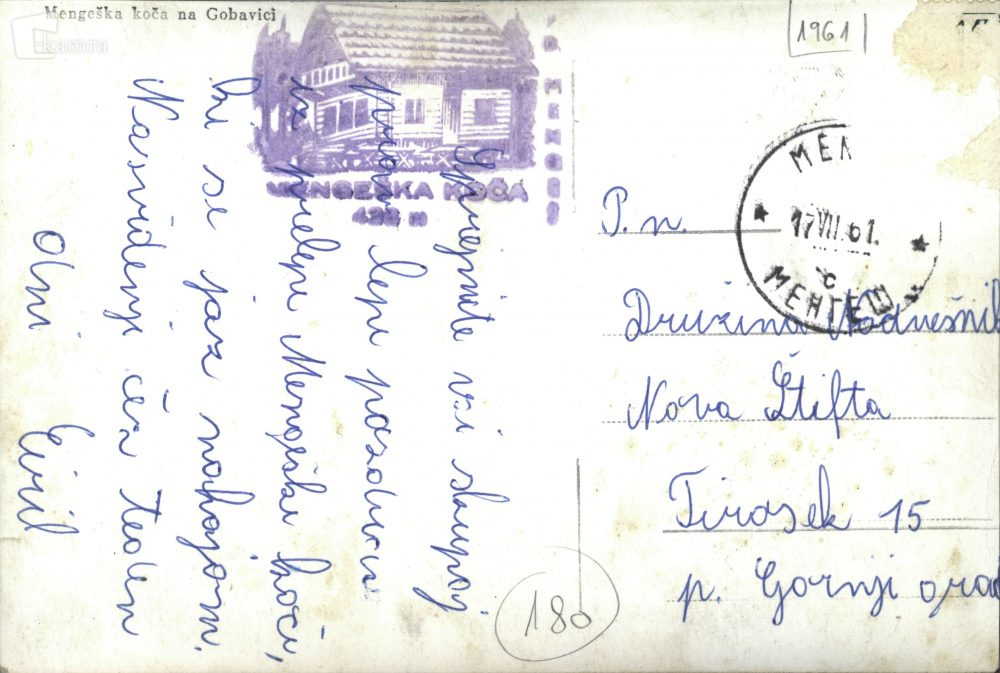 Mengeška koča na Gobavici
kamra
1961
MENGEŠKA KOČA
432 M
Sprejmite vsi skupaj
lepe pozdrave
iz prelepe Mengeške koče,
ki se jaz nahajam.
Nasvidenje čez teden
dni
Ciril
P. n.
Družina
Nova Štifta
Tirosek 15
p. Gornji grad
MEN
17 VII 61.
c
МЕНГЕШ
180